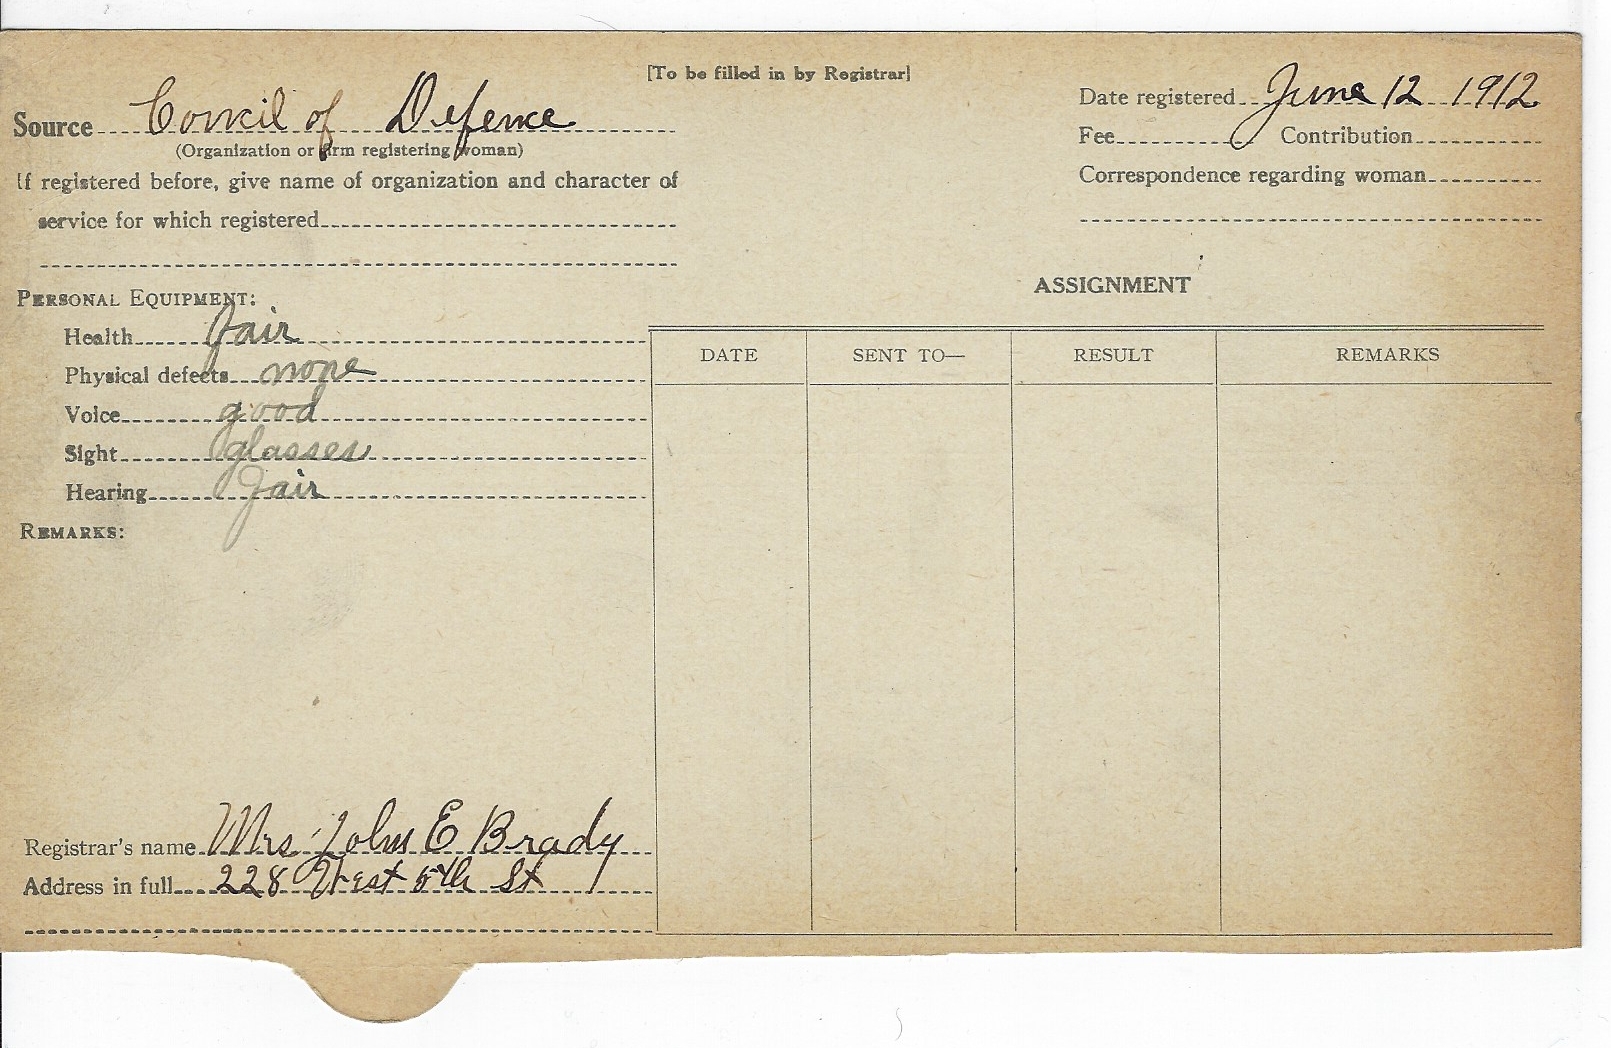 [To be filled in by Registrar]
Source Council of Defence
(Organization or firm registering woman)
If registered before, give name of organization and character of
service for which registered
Date registered June 12 1912
Fee Contribution
Correspondence regarding woman
PERSONAL EQUIPMENT:
Health fair
Physical defects none
Voice good
Sight glasses
Hearing fair
REMARKS:
ASSIGNMENT
DATE SENT TO— RESULT REMARKS
Registrar's name Mrs John E Brady
Address in full 228 West 5th St